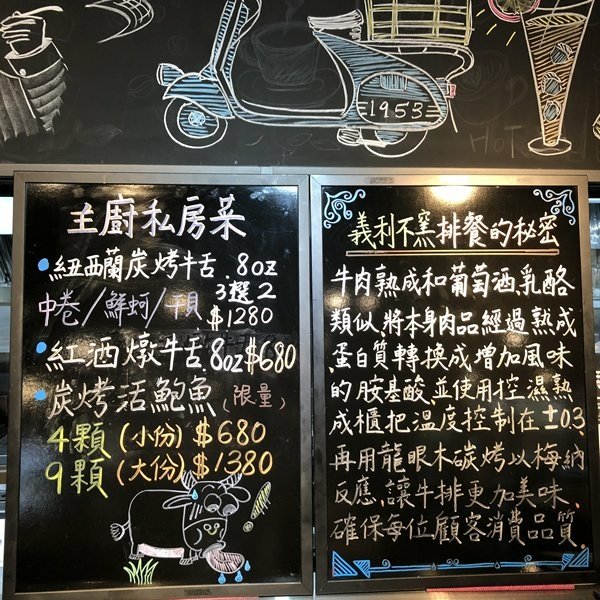 1953
HOT
主廚私房菜
紐西蘭炭烤牛舌.8oz
中卷/鮮蚵/干貝 3選2
$1280
紅酒燉牛舌.8oz $680
炭烤活鮑魚(限量)
4顆(小份)$680
9顆(大份)$1380
義利不窯排餐的秘密
牛肉熟成和葡萄酒.乳酪
類似.將本身肉品經過熟成
蛋白質轉換成增加風味
的胺基酸,並使用控濕熟
成櫃把溫度控制在±0.3
再用龍眼木碳烤以梅納
反應,讓牛排更加美味.
確保每位顧客消費品質.